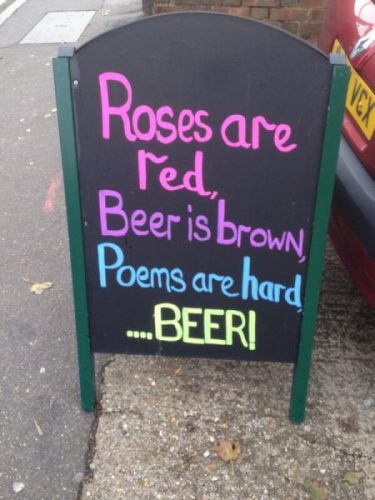 Roses are
red,
Beer is brown,
Poems are hard,
....BEER!
VCX